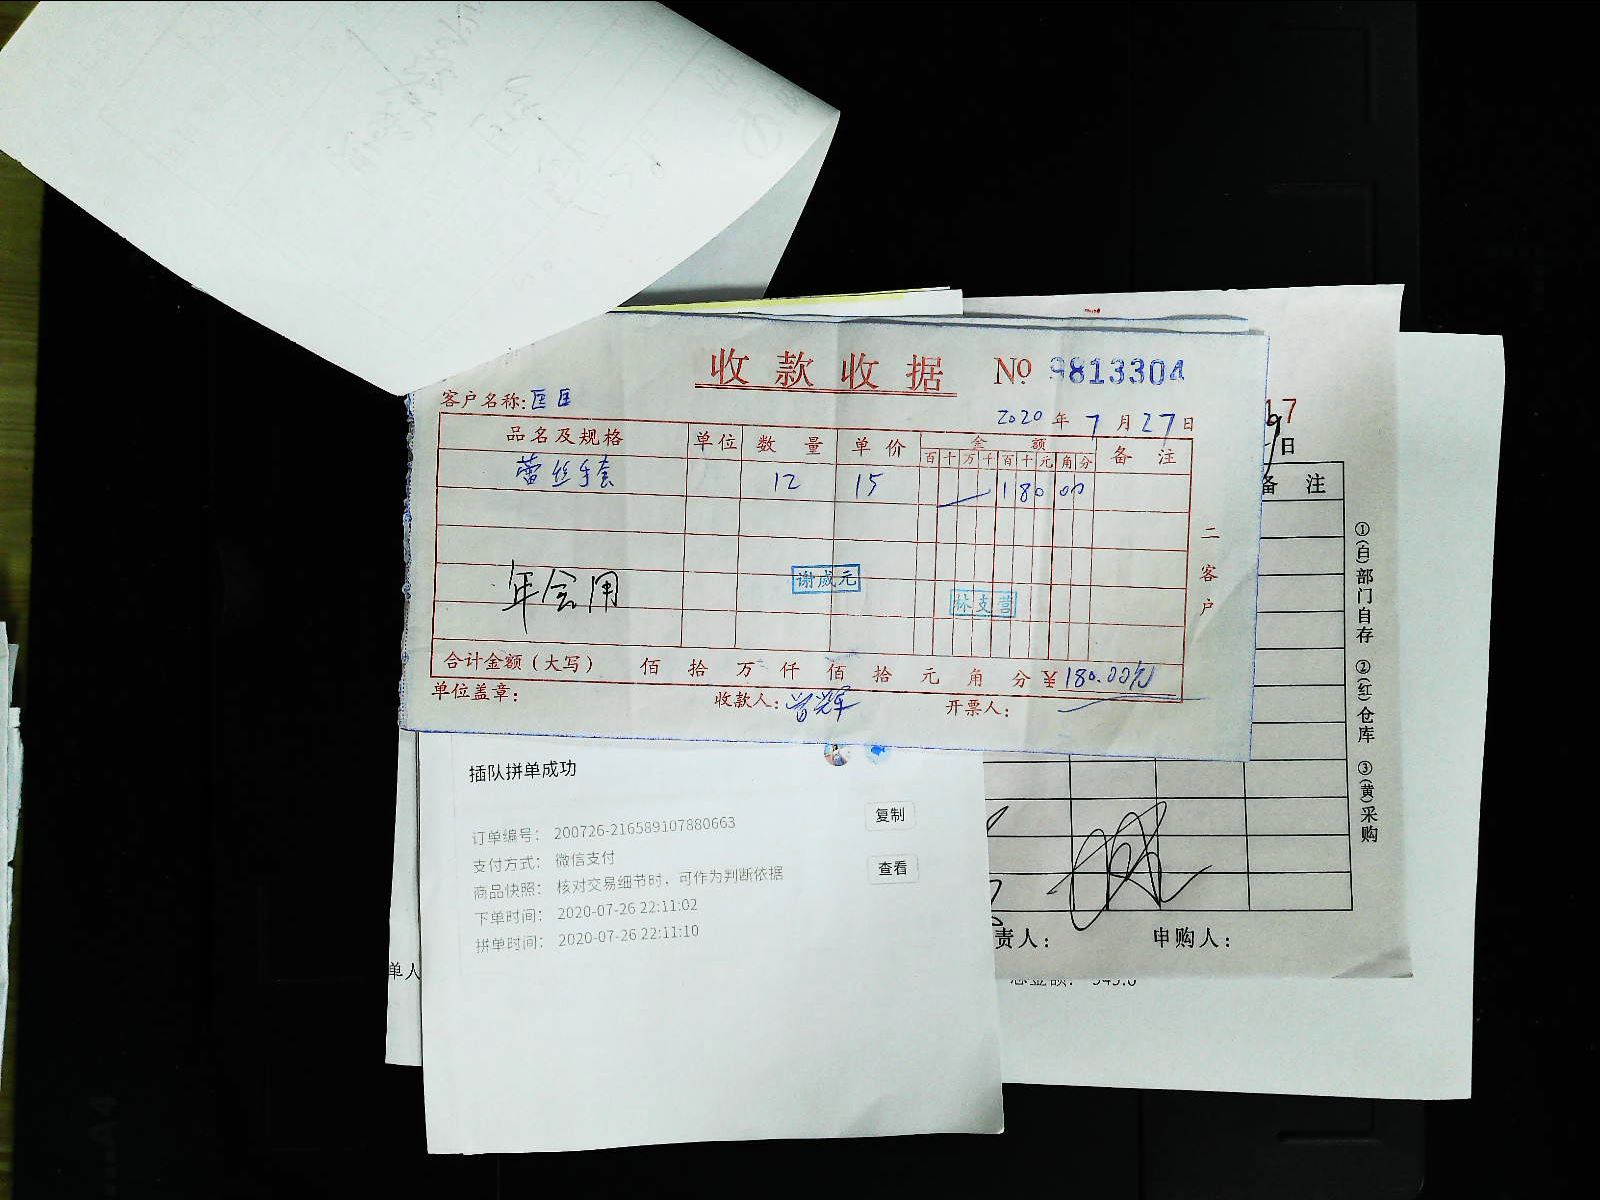 收款收据 No 9813304
客户名称: 匡匡
2020年7月27日
品名及规格 单位 数量 单价 金额 备注
百十万千百十元角分
蕾丝手套 12 15 180 00
年会用
谢成元
林支营
合计金额（大写） 佰 拾 万 仟 佰 拾 元 角 分 ¥180.00元
单位盖章： 收款人： 开票人：
二客户
插队拼单成功
订单编号： 200726-216589107880663 复制
支付方式： 微信支付
商品快照： 核对交易细节时，可作为判断依据 查看
下单时间： 2020-07-26 22:11:02
拼单时间： 2020-07-26 22:11:10
单人
17
日
备注
①(白)部门自存 ②(红)仓库 ③(黄)采购
责人： 申购人：
A4